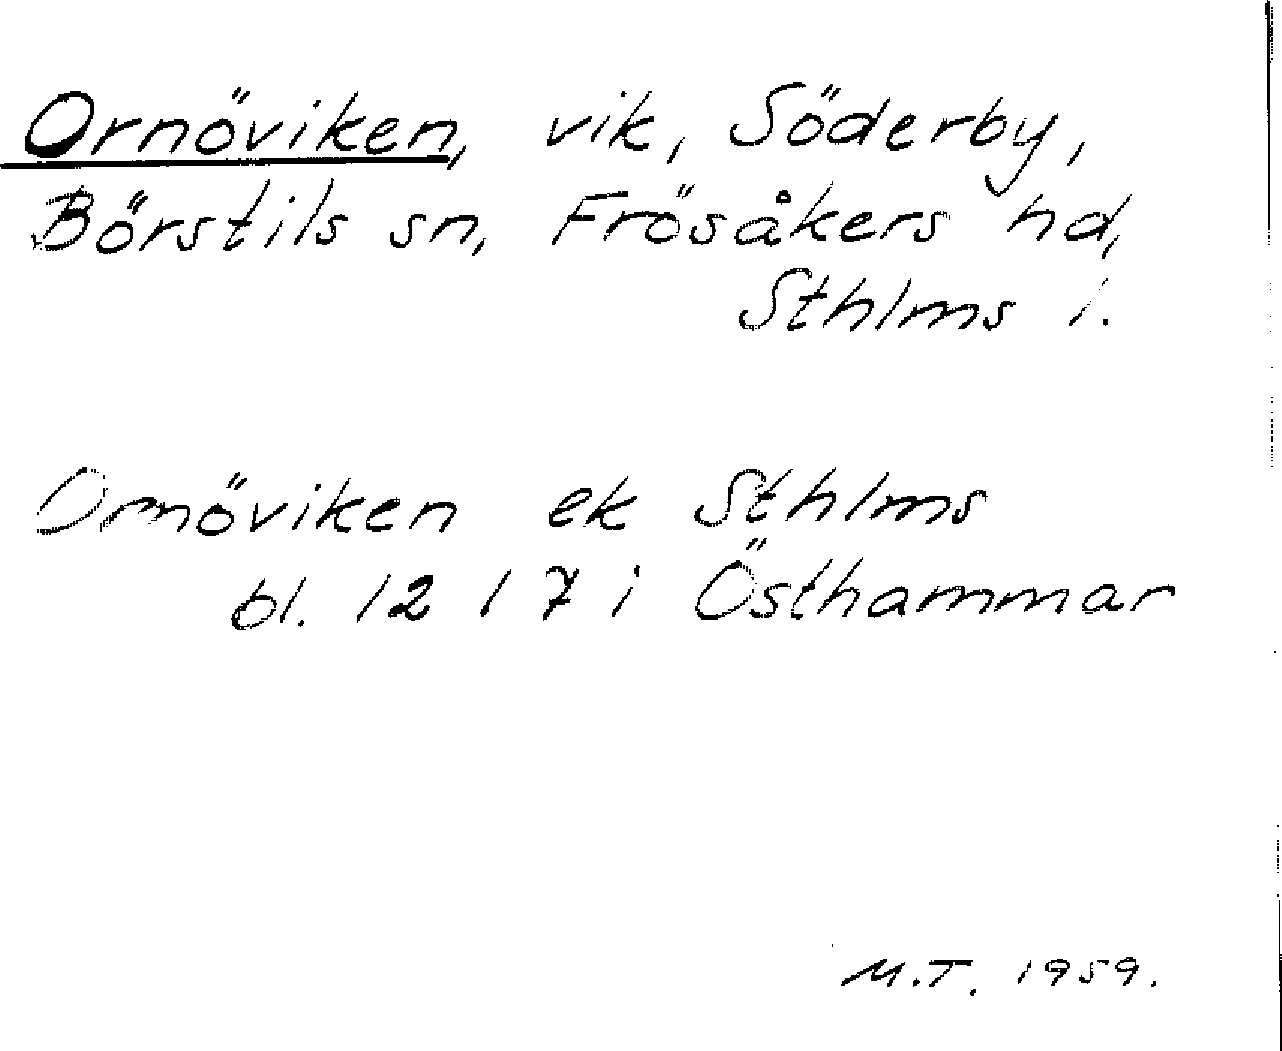 Ornöviken, vik, Söderby,
Börstils sn, Frösåkers hd,
Sthlms l.
Ornöviken ek Sthlms
bl. 12 I 7 i Östhammar
M.T. 1959.